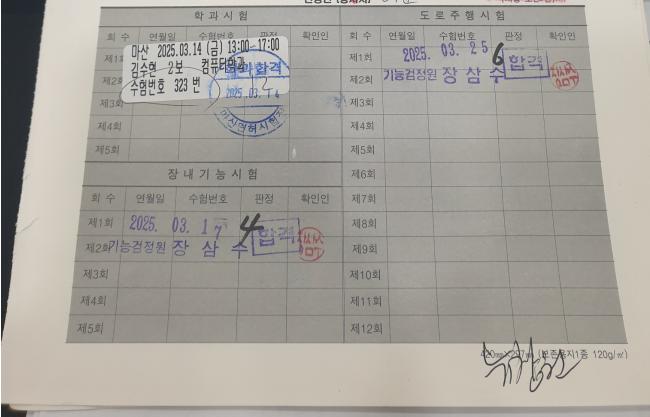 학 과 시 험
회 수 연월일 수험번호 판정 확인인
제1회 마산 2025.03.14 (금) 13:00~17:00
김수현 2보 컴퓨터학과
수험번호 323 번
학과합격
2025.03.14
마산면허시험장
제3회
제4회
제5회
장 내 기 능 시 험
회 수 연월일 수험번호 판정 확인인
제1회 2025. 03. 17 4 합격
제2회 기능검정원 장 삼 수
제3회
제4회
제5회
도 로 주 행 시 험
회 수 연월일 수험번호 판정 확인인
제1회 2025. 03. 25 6 합격
제2회 기능검정원 장 삼 수
제3회
제4회
제5회
제6회
제7회
제8회
제9회
제10회
제11회
제12회
420㎜×297㎜ (보존용지1종 120g/㎡)